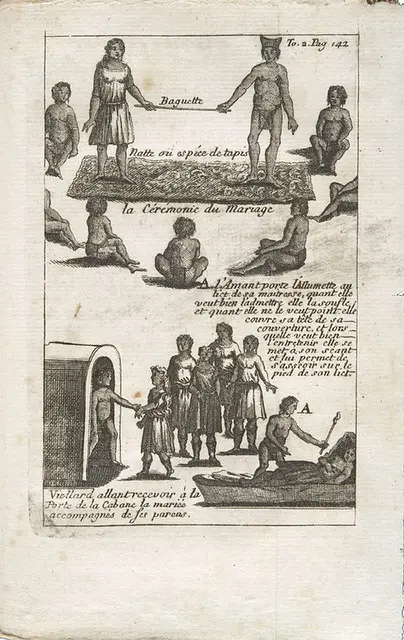 To. 2. Pag 142
Baguette
Natte ou espéce de tapis
la Céremonie du Mariage
A l'Amant porte l'Allumette au
lict de sa maitresse, quant elle
veut bien l'admettre elle la soufle,
et quant elle ne le veut point elle
couvre sa tête de sa
couverture, et lors
quelle veut bien
l'entretenir elle se
met a son seant
et lui permet de
s'asseoir sur le
pied de son lict.
A
Viellard allant reçevoir à la
Porte de la Cabane la mariée
accompagnés de ses parens.